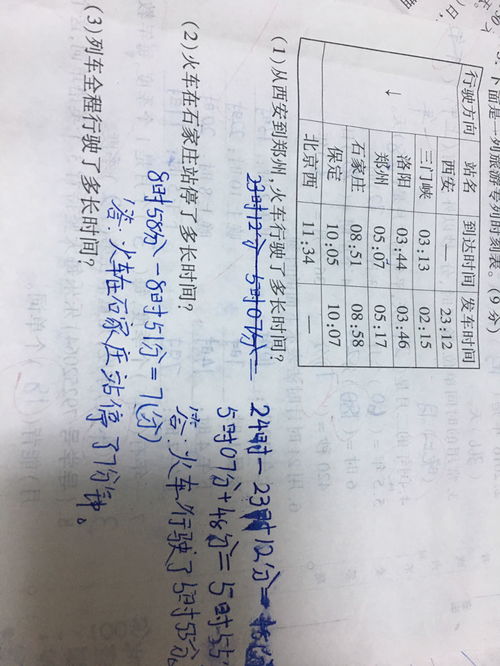 下面是一列旅游专列时刻表。(9分)
行驶方向 站名 到达时间 发车时间
↓ 西安 — 23:12
三门峡 03:13 02:15
洛阳 03:44 03:46
郑州 05:07 05:17
石家庄 08:51 08:58
保定 10:05 10:07
北京西 11:34 —
(1)从西安到郑州,火车行驶了多长时间?
23时12分-5时07分= 24时-23时12分=
5时07分+48分=5时55
答:火车行驶了5时55分。
(2)火车在石家庄站停了多长时间?
8时58分-8时51分=7(分)
答:火车在石家庄站停了7分钟。
(3)列车全程行驶了多长时间?